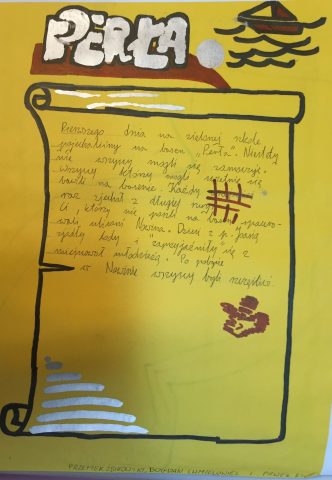 PERŁA
Pierwszego dnia na zielonej szkole
pojechaliśmy na basen „Perła”. Niestety
nie wszyscy mogli się zanurzyć.
Wszyscy którzy mogli świetnie się
bawili na basenie. Każdy
raz zjechał z długiej rury
Ci, którzy nie poszli na basen spacero-
wali ulicami Nowina. Dzieci z p. Joasią
zjadły lody i "zaprzyjaźniły" się z
miejscową młodzieżą. Po pobycie
w Nowinie wszyscy byli szczęśliwi.
PRZEMEK BOGDAN I PAWEŁ